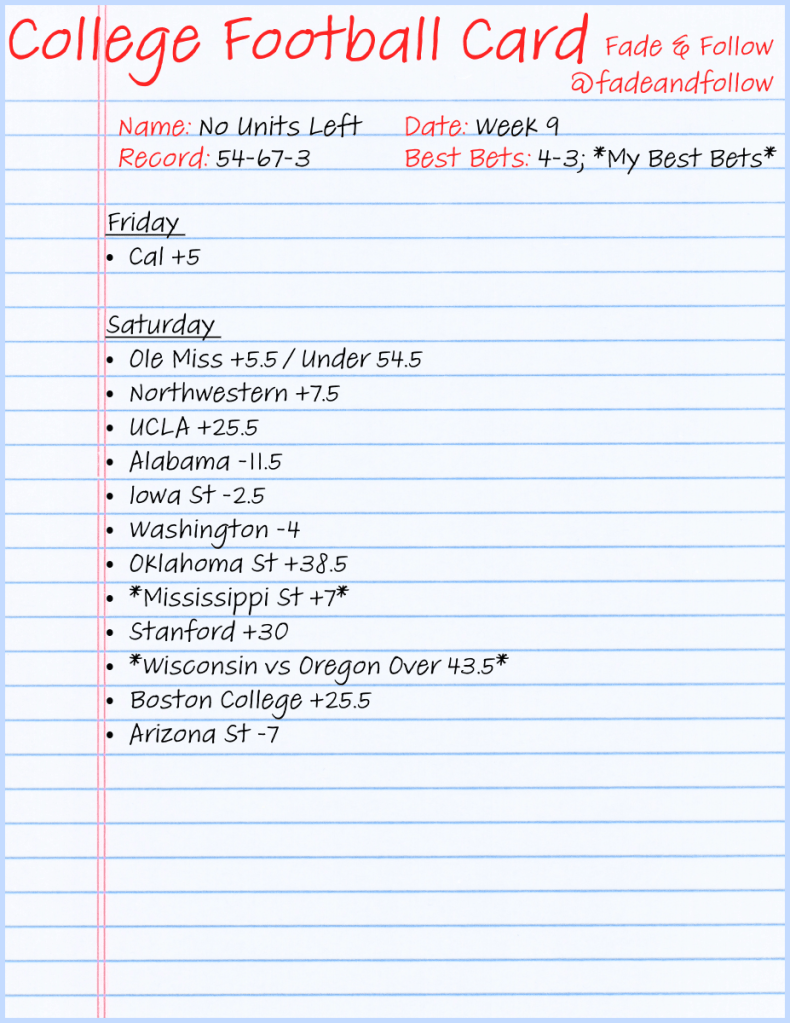 College Football Card Fade & Follow
@fadeandfollow
Name: No Units Left Date: Week 9
Record: 54-67-3 Best Bets: 4-3; *My Best Bets*
Friday
• Cal +5
Saturday
• Ole Miss +5.5 / Under 54.5
• Northwestern +7.5
• UCLA +25.5
• Alabama -11.5
• Iowa St -2.5
• Washington -4
• Oklahoma St +38.5
• *Mississippi St +7*
• Stanford +30
• *Wisconsin vs Oregon Over 43.5*
• Boston College +25.5
• Arizona St -7